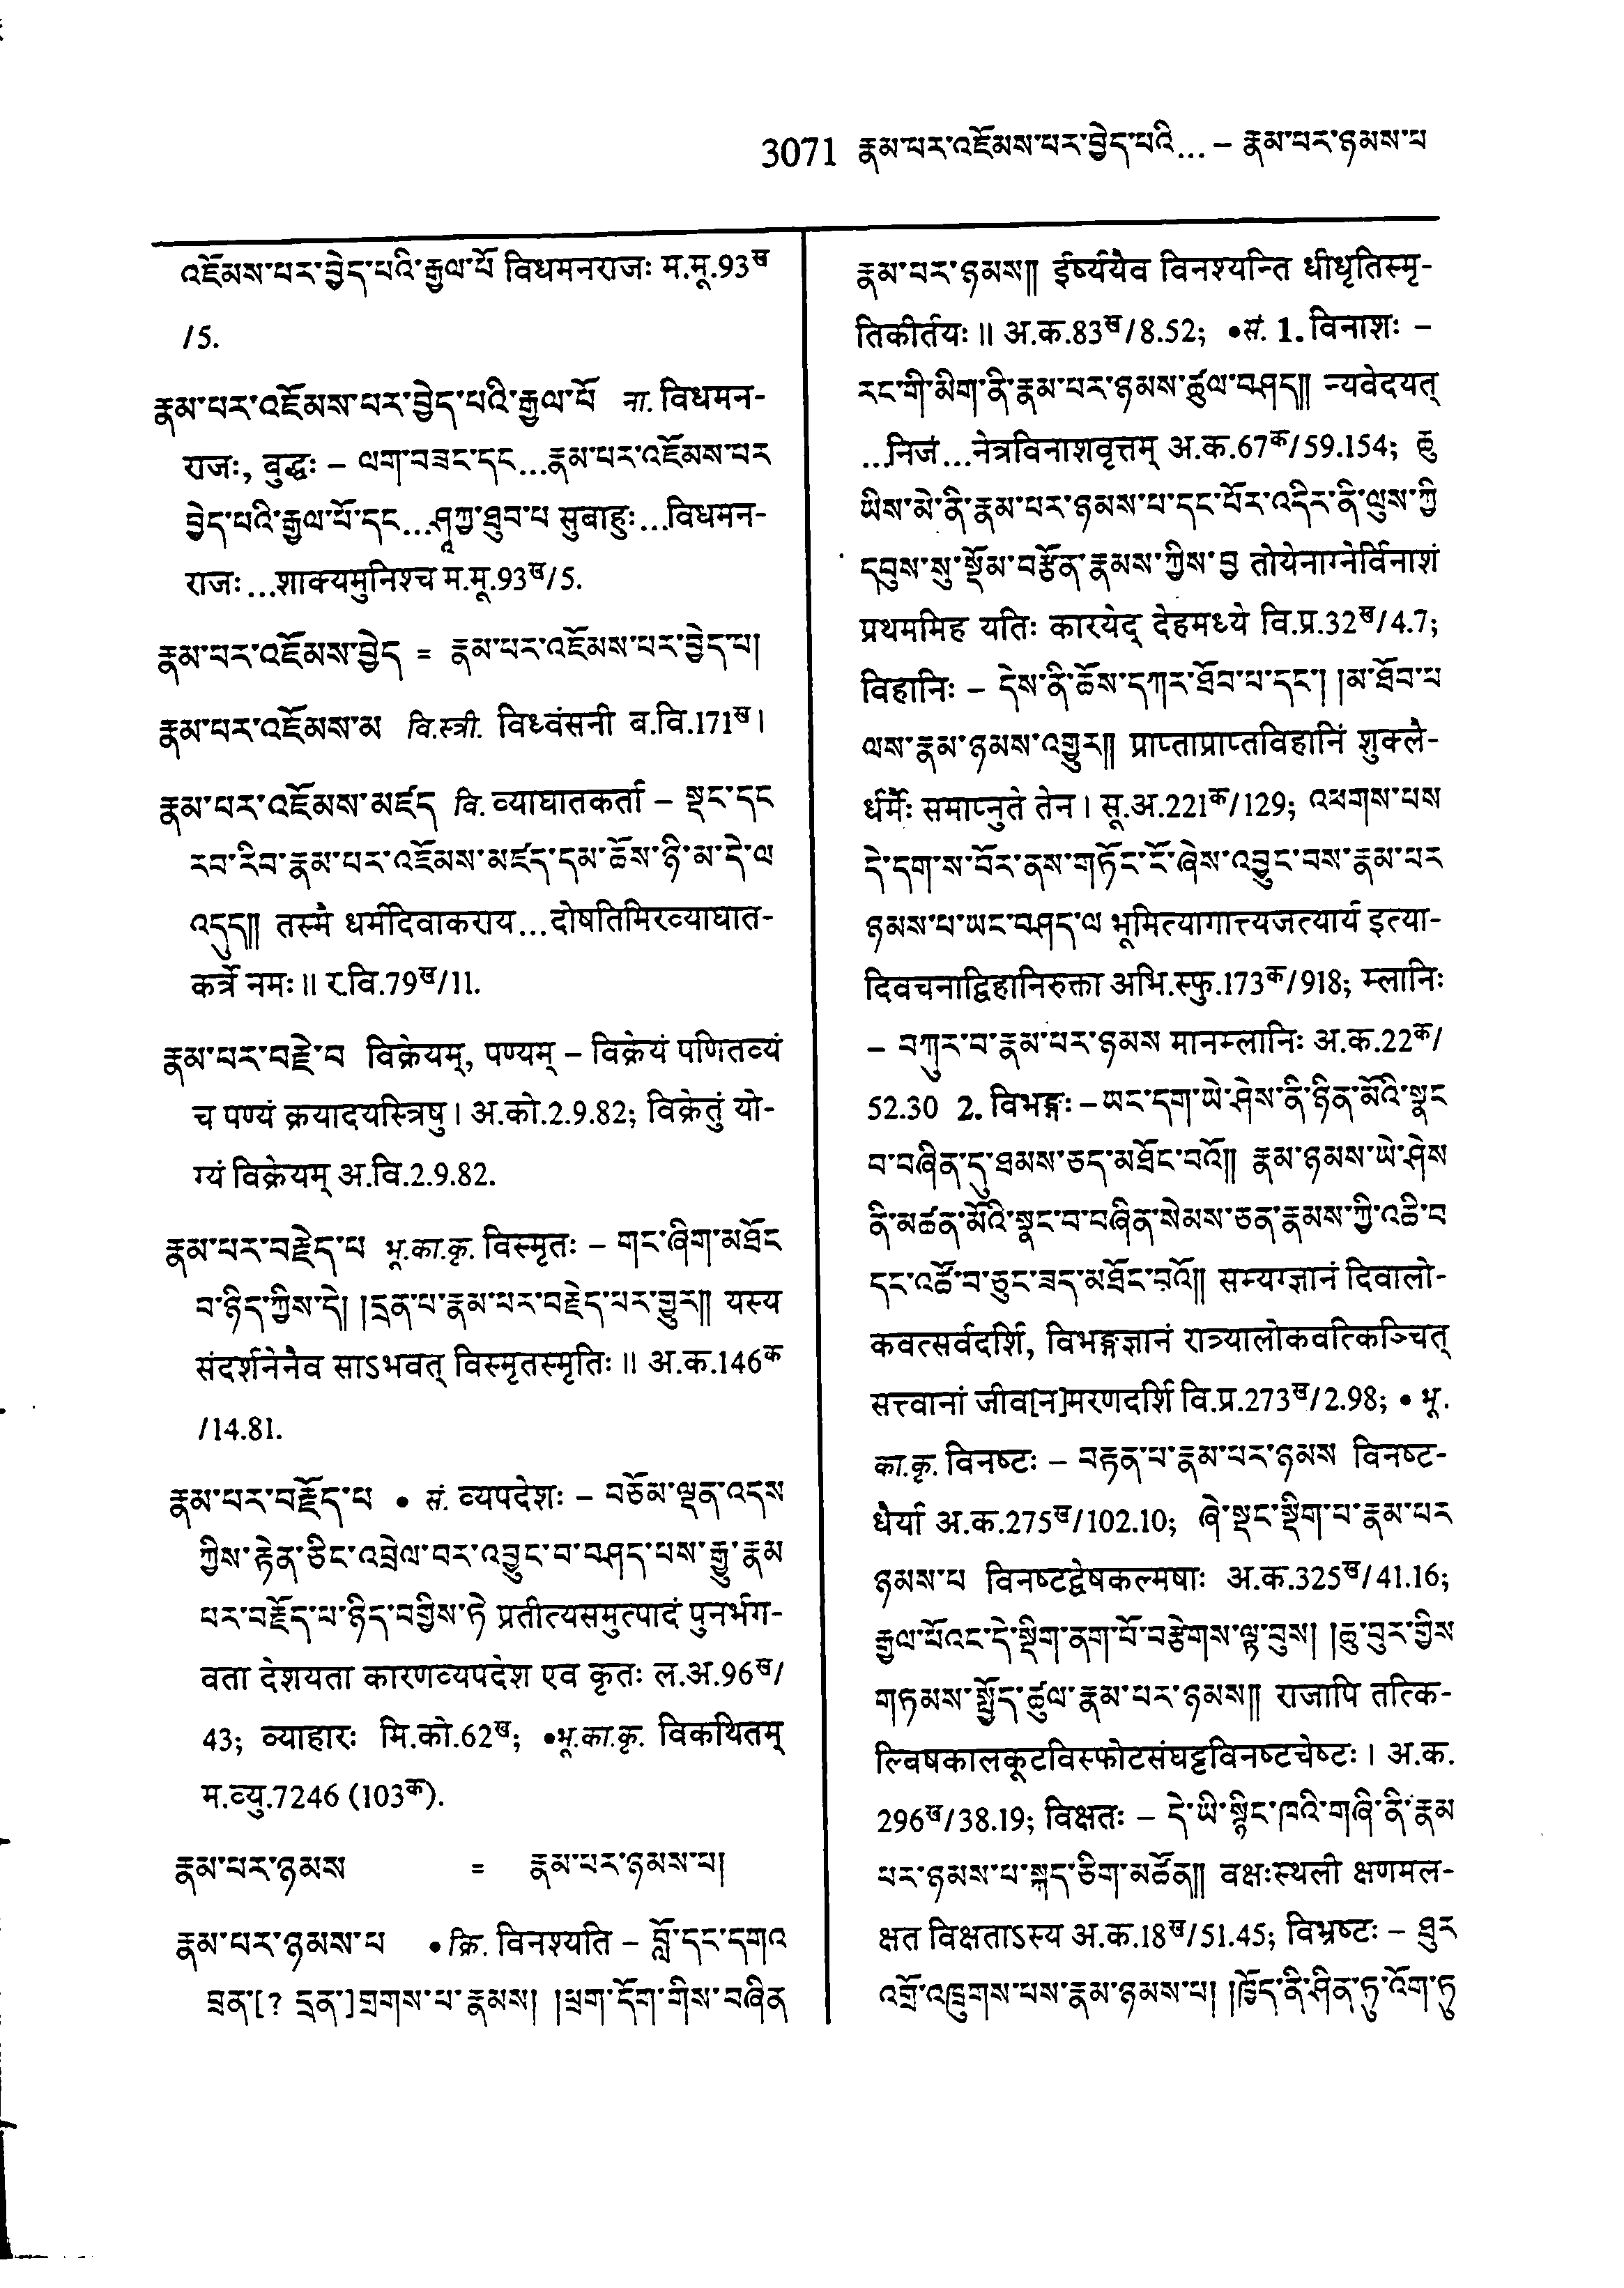 3071 རྣམ་པར་འཇོམས་པར་བྱེད་པའི... – རྣམ་པར་ཉམས་པ
འཇོམས་པར་བྱེད་པའི་རྒྱལ་པོ विधमनराजः म.मू.93ख
/5.
རྣམ་པར་འཇོམས་པར་བྱེད་པའི་རྒྱལ་པོ ना. विधमन-
राजः, बुद्धः – ལག་བཟང་དང...རྣམ་པར་འཇོམས་པར
བྱེད་པའི་རྒྱལ་པོ་དང...ཤཱཀྱ་ཐུབ་པ सुबाहुः...विधमन-
राजः...शाक्यमुनिश्च म.मू.93ख/5.
རྣམ་པར་འཇོམས་བྱེད = རྣམ་པར་འཇོམས་པར་བྱེད་པ།
རྣམ་པར་འཇོམས་མ वि.स्त्री. विध्वंसनी ब.वि.171ख।
རྣམ་པར་འཇོམས་མཛད वि. व्याघातकर्ता – སྡང་དང
རབ་རིབ་རྣམ་པར་འཇོམས་མཛད་དམ་ཆོས་ཉི་མ་དེ་ལ
འདུད།། तस्मै धर्मदिवाकराय...दोषतिमिरव्याघात-
कर्त्रे नमः॥ र.वि.79ख/11.
རྣམ་པར་བརྗེ་བ विक्रेयम्, पण्यम् – विक्रेयं पणितव्यं
च पण्यं क्रयादयस्त्रिषु। अ.को.2.9.82; विक्रेतुं यो-
ग्यं विक्रेयम् अ.वि.2.9.82.
རྣམ་པར་བརྗེད་པ भू.का.कृ. विस्मृतः – གང་ཞིག་མཐོང
བ་ཉིད་ཀྱིས་དེ། །དྲན་པ་རྣམ་པར་བརྗེད་པར་གྱུར།། यस्य
संदर्शनेनैव साऽभवत् विस्मृतस्मृतिः॥ अ.क.146क
/14.81.
རྣམ་པར་བརྗོད་པ • सं. व्यपदेशः – བཅོམ་ལྡན་འདས
ཀྱིས་རྟེན་ཅིང་འབྲེལ་བར་འབྱུང་བ་བཤད་པས་རྒྱུ་རྣམ
པར་བརྗོད་པ་ཉིད་བགྱིས་ཏེ प्रतीत्यसमुत्पादं पुनर्भग-
वता देशयता कारणव्यपदेश एव कृतः ल.अ.96ख/
43; व्याहारः मि.को.62ख; •भू.का.कृ. विकथितम्
म.व्यु.7246 (103क).
རྣམ་པར་ཉམས = རྣམ་པར་ཉམས་པ།
རྣམ་པར་ཉམས་པ •क्रि. विनश्यति – བློ་དང་དགའ
བྲན་[? དྲན་]གྲགས་པ་རྣམས། །ཕྲག་དོག་གིས་བཞིན
རྣམ་པར་ཉམས།། ईर्ष्ययैव विनश्यन्ति धीधृतिस्मृ-
तिकीर्तयः॥ अ.क.83ख/8.52; •सं. 1. विनाशः –
རང་གི་མིག་ནི་རྣམ་པར་ཉམས་ཚུལ་བཤད།། न्यवेदयत्
...निजं...नेत्रविनाशवृत्तम् अ.क.67क/59.154; ཆུ
ཡིས་མེ་ནི་རྣམ་པར་ཉམས་པ་དང་པོར་འདིར་ནི་ལུས་ཀྱི
དབུས་སུ་སྡོམ་བརྩོན་རྣམས་ཀྱིས་བྱ तोयेनाग्नेर्विनाशं
प्रथममिह यतिः कारयेद् देहमध्ये वि.प्र.32ख/4.7;
विहानिः – དེས་ནི་ཆོས་དཀར་ཐོབ་པ་དང་། །མ་ཐོབ་པ
ལས་རྣམ་ཉམས་འགྱུར།། प्राप्ताप्राप्तविहानिं शुक्लै-
र्धर्मैः समाप्नुते तेन। सू.अ.221क/129; འཕགས་པས
དེ་དག་ས་བོར་ནས་གཏོང་ངོ་ཞེས་འབྱུང་བས་རྣམ་པར
ཉམས་པ་ཡང་བཤད་ལ भूमित्यागात्त्यजत्यार्य इत्या-
दिवचनाद्विहानिरुक्ता अभि.स्फु.173क/918; म्लानिः
– བཀུར་བ་རྣམ་པར་ཉམས मानम्लानिः अ.क.22क/
52.30 2. विभङ्गः – ཡང་དག་ཡེ་ཤེས་ནི་ཉིན་མོའི་སྣང
བ་བཞིན་དུ་ཐམས་ཅད་མཐོང་བའོ།། རྣམ་ཉམས་ཡེ་ཤེས
ནི་མཚན་མོའི་སྣང་བ་བཞིན་སེམས་ཅན་རྣམས་ཀྱི་འཆི་བ
དང་འཚོ་བ་ཅུང་ཟད་མཐོང་བའོ།། सम्यग्ज्ञानं दिवालो-
कवत्सर्वदर्शि, विभङ्गज्ञानं रात्र्यालोकवत्किञ्चित्
सत्त्वानां जीव[न]मरणदर्शि वि.प्र.273ख/2.98; • भू.
का.कृ. विनष्टः – བརྟན་པ་རྣམ་པར་ཉམས विनष्ट-
धैर्या अ.क.275ख/102.10; ཞེ་སྡང་སྡིག་པ་རྣམ་པར
ཉམས་པ विनष्टद्वेषकल्मषाः अ.क.325ख/41.16;
རྒྱལ་པོའང་དེ་སྡིག་ནག་པོ་བརྩེགས་ལྟ་བུས། །ཆུ་བུར་གྱིས
གཏམས་སྤྱོད་ཚུལ་རྣམ་པར་ཉམས།། राजापि तत्कि-
ल्विषकालकूटविस्फोटसंघट्टविनष्टचेष्टः। अ.क.
296ख/38.19; विक्षतः – དེ་ཡི་སྙིང་ཁའི་གཞི་ནི་རྣམ
པར་ཉམས་པ་སྐད་ཅིག་མཚོན།། वक्षःस्थली क्षणमल-
क्षत विक्षताऽस्य अ.क.18ख/51.45; विभ्रष्टः – ཐུར
འགྲོ་འཁྲུགས་པས་རྣམ་ཉམས་པ། །ཁྱོད་ནི་ཤིན་ཏུ་འོག་ཏུ